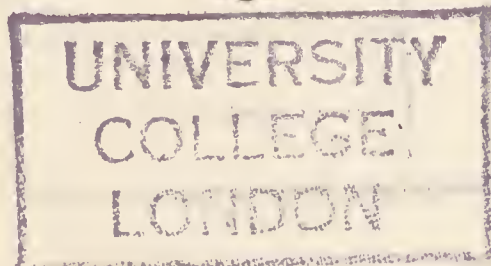 UNIVERSITY
COLLEGE,
LONDON